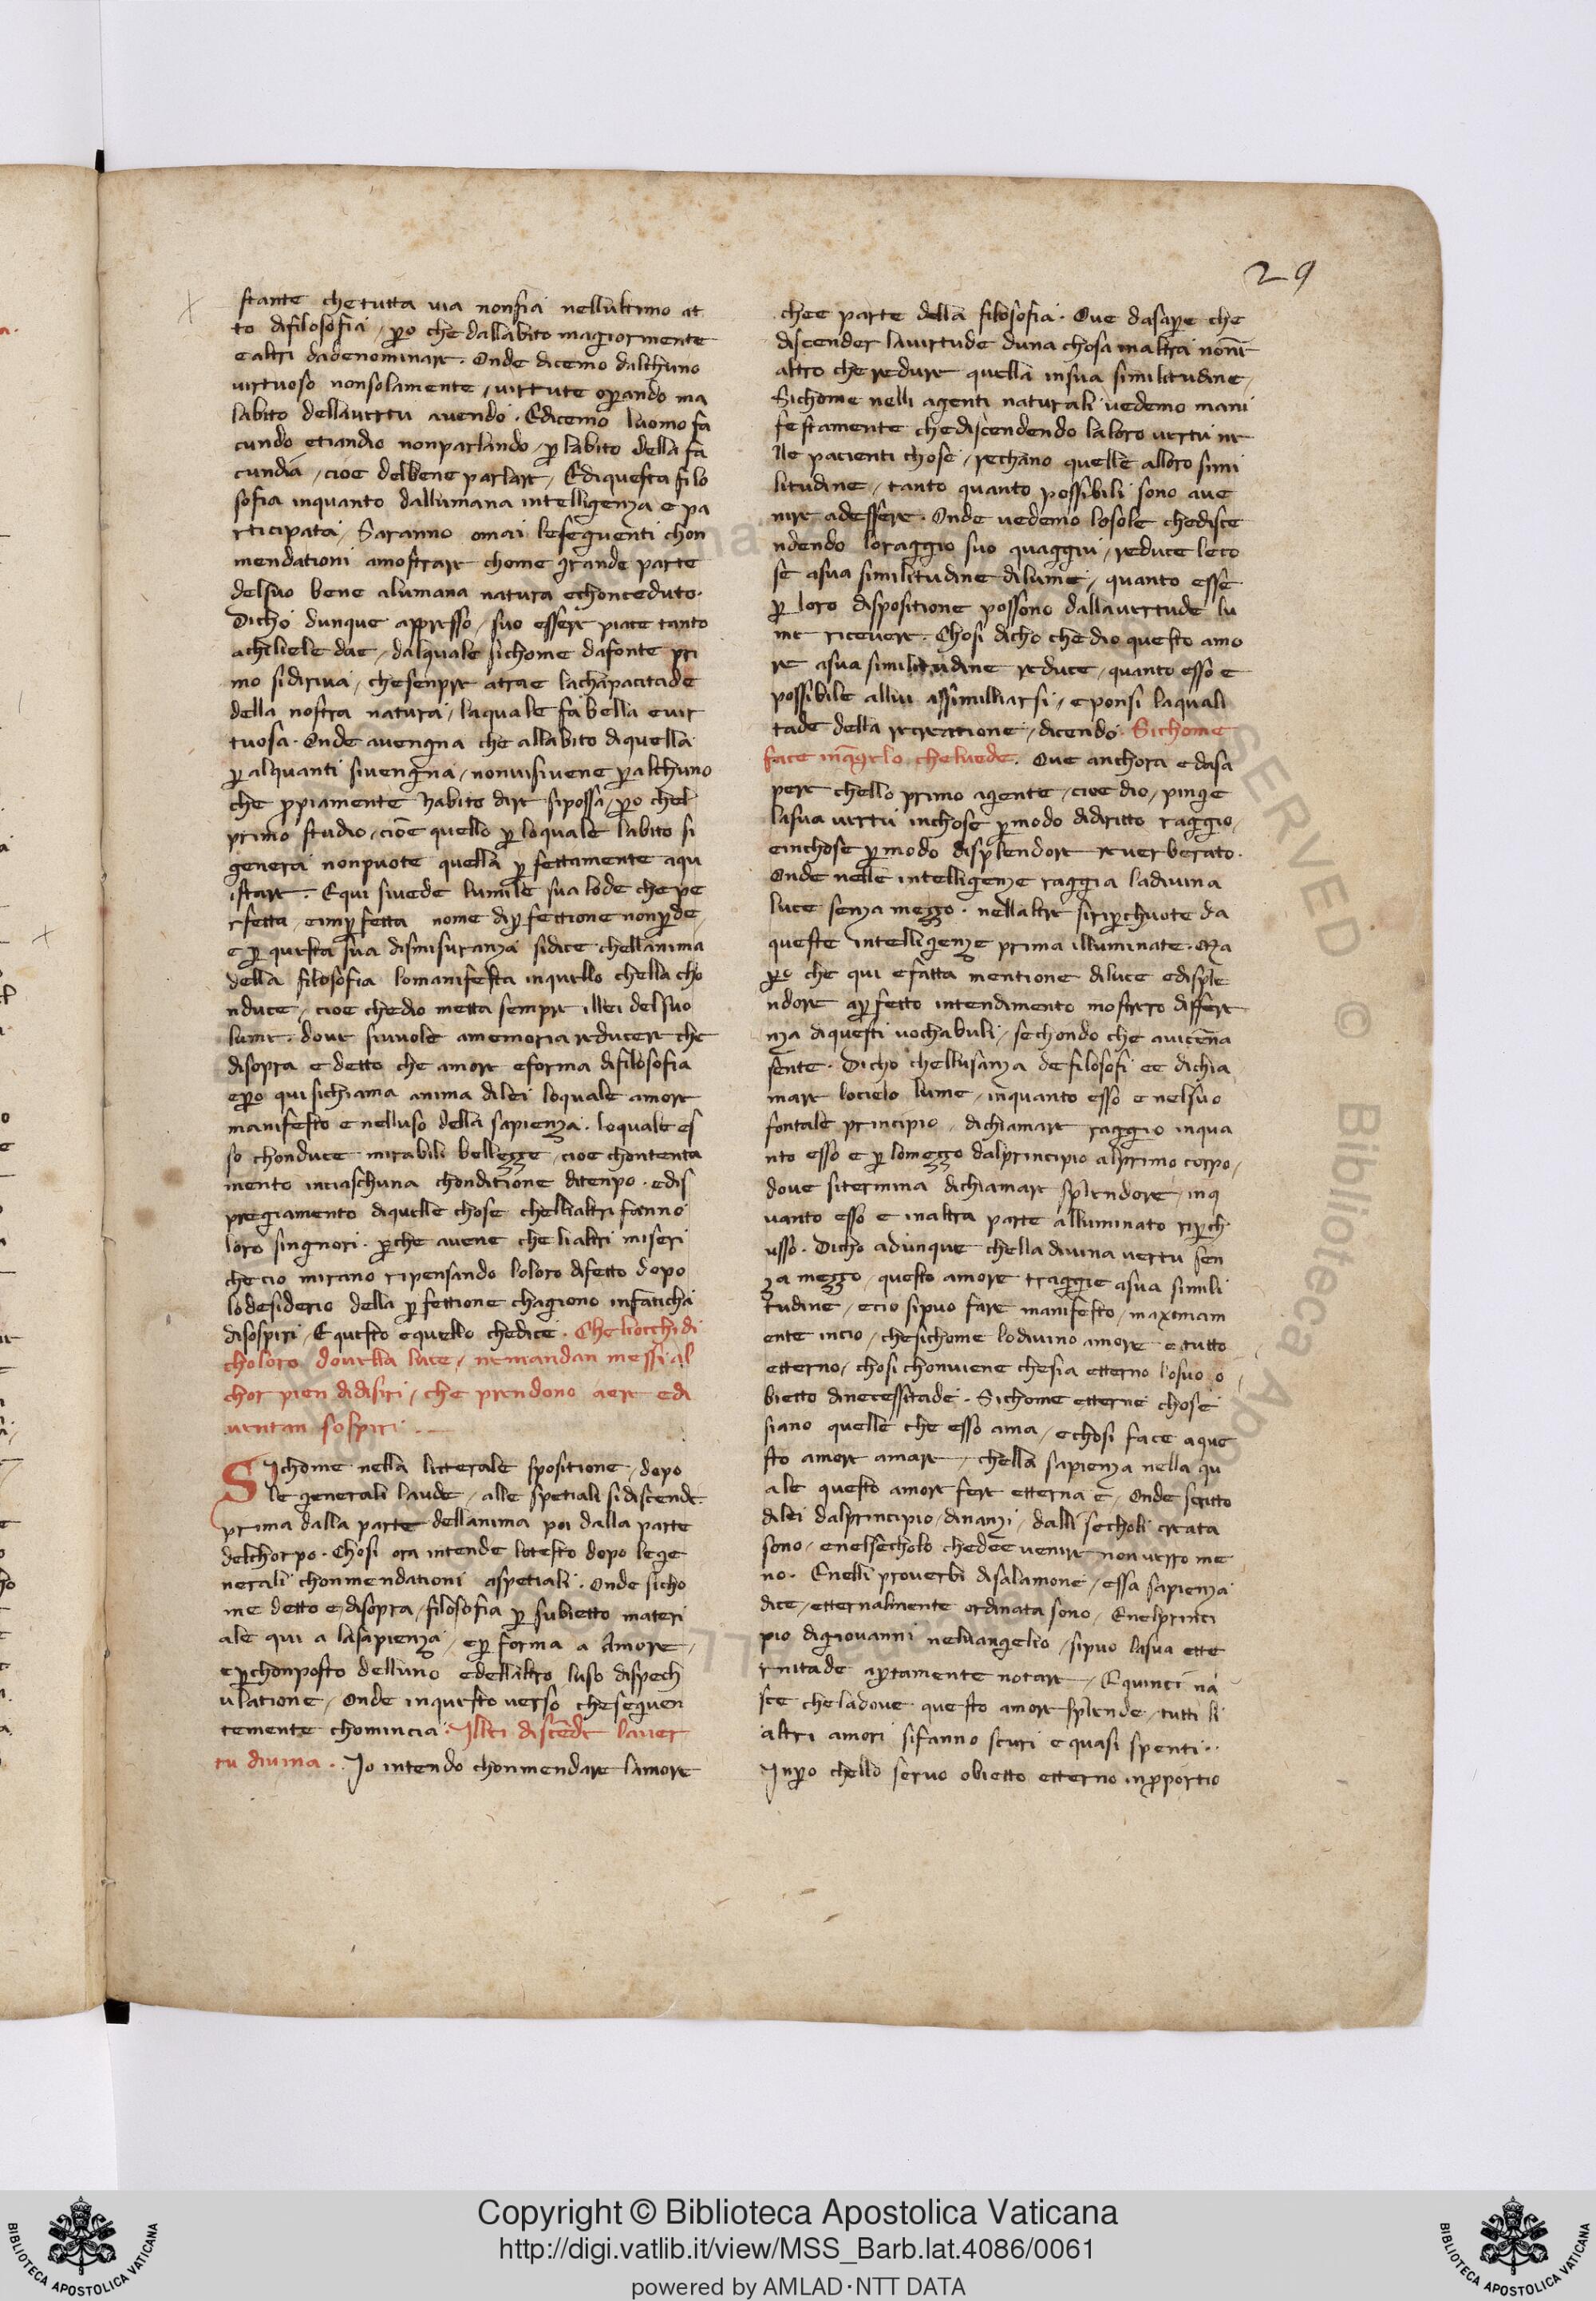 29
stante che tutta uia nonsia nellultimo at
to difilosofia / ꝑo che dallabito magiormente
e altri dadenominare . Onde dicemo dalchuno
uirtuoso nonsolamente / uirtute oꝑando ma
labito dellauertu auendo . Edicemo luomo fa
cundo etiandio nonparlando / ꝑ labito della fa
cundia / cioe delbene parlare / Ediquesta filo
sofia inquanto dallumana intelligenza e pa
rticipata / Saranno omai lesequenti chon
mendationi amostrare chome grande parte
delsuo bene alumana natura echonceduto .
Dicho dunque appresso / suo essere piace tanto
achiliele dae / dalquale sichome dafonte pri
mo sidiriua / chesenpre atrae lachapacitade
della nostra natura / laquale fa bella e uir
tuosa . Onde auengna che allabito diquella
ꝑ alquanti siuengna / nonuisiuene ꝑ alchuno
che ꝓpiamente habito dire sipossa / ꝑo chel
primo studio / cioe quello ꝑ loquale labito si
genera nonpuote quella ꝑfettamente aqu
istare . Equi siuede lumile sua lode che pe
rfetta / eimꝑfetta nome diꝑfectione nonꝑde /
e ꝑ questa sua dismisuranza sidice chellanima
della filosofia lomanifesta inquello chella cho
nduce / cioe chedio metta sempre illei delsuo
lume . doue siuuole amemoria reducere che
disopra e detto che amore eforma difilosofia
eꝑo qui sichiama anima dilei loquale amore
manifesto e nelluso della sapienza . loquale es
so chonduce mirabili bellezze / cioe chontenta
mento inciaschuna chonditione ditenpo . edis
pregiamento diquelle chose chelliàltri fanno
loro singnori . ꝑche auene che liàltri miseri
che cio mirano ripensando loloro difetto dopo
lodesiderio della ꝑfettione chagiono infaticha
disospiri / E questo e quello chedice . Cheliocchi di
choloro douella luce / nemandan messi al
chor pien didisiri / che prendono aere e di
uentan sospiri .
Sichome nella litterale spositione / dopo
le generali laude / alle spetiali sidiscende
prima dalla parte dellanima poi dalla parte
delchorpo . Chosi ora intende lotesto dopo lege
nerali chonmendationi aspetiali . Onde sicho
me detto e / disopra / filosofia ꝑ subietto materi
ale qui a lasapienza / eꝑ forma a Amore /
eꝑ chonposto delluno edellàltro luso dispech
ulatione / Onde inquesto uerso chesequen
temente chomincia . Illei discēde lauer
tu diuina . Io intendo chonmendare lamore
chee parte della filosofia . Oue dasaꝑe che
discender lauirtude duna chosa inaltra none
altro che redure quella insua similitudine /
Sichome nelli agenti naturali uedemo mani
festamente chediscendendo laloro uertu ne
lle pacienti chose / rechano quelle alloro simi
litudine / tanto quanto possibili sono aue
nire adessere . Onde uedemo losole chedisce
ndendo loraggio suo quaggiu / reduce leco
se asua similitudine dilume / quanto esse
ꝑ loro dispositione possono dallauertude lu
me riceuere . Chosi dicho che dio questo amo
re asua similitudine reduce / quanto esso e
possibile allui assimilliarsi / e ponsi laquali
tade della recreatione / dicendo . Sichome
face inangelo cheluede . Oue anchora e dasa
pere chello primo agente / cioe dio / pinge
lasua uertu inchose ꝑmodo didiritto raggio /
einchose ꝑ modo displendore reuerberato .
Onde nelle intelligenze raggia ladiuina
luce senza mezzo . nellaltre siriꝑchuote da
queste intelligenze prima illuminate . Ma
ꝑo che qui e fatta mentione diluce edisple
ndore aꝑfetto intendimento mosterro differe
nza diquesti uochabuli / sechondo che auicēna
sente . Dicho chellusanza de filosofi ee dichia
mare locielo lume / inquanto esso e nelsuo
fontale principio / dichiamare raggio inqua
nto esso e ꝑ lomezzo dalprincipio alprimo corpo /
doue sitermina dichiamare splendore / inq
uanto esso e inaltra parte alluminato riꝑch
usso . Dicho adunque chella diuina uertu sen
za mezzo / questo amore traggie asua simili
tudine / ecio sipuo fare manifesto / maximam
ente incio / chesichome lodiuino amore e tutto
etterno / chosi chonuiene chesia etterno losuo o
bietto dinecessitade . Sichome etterne chose
siano quelle che esso ama / echosi face aque
sto amore amare / chella sapienza nella qu
ale questo amore fere etterna e / Onde scritto
dilei dalprincipio / dinanzi / dalli secholi creata
sono / enelsecholo chedee uenire non uerro me
no . Enelli prouerbi disalamone / essa sapienza
dice / etternalmente ordinata sono / Enelprinci
pio digiouanni neluangelio / sipuo lasua ette
rnitade aꝑtamente notare / E quinci na
sce cheladoue questo amore splende / tutti li
altri amori sifanno scuri e quasi spenti .
Inꝑo chello seruo obietto etterno inꝓportio
Copyright © Biblioteca Apostolica Vaticana
http://digi.vatlib.it/view/MSS_Barb.lat.4086/0061
powered by AMLAD·NTT DATA
BIBLIOTECA APOSTOLICA VATICANA
BIBLIOTECA APOSTOLICA VATICANA